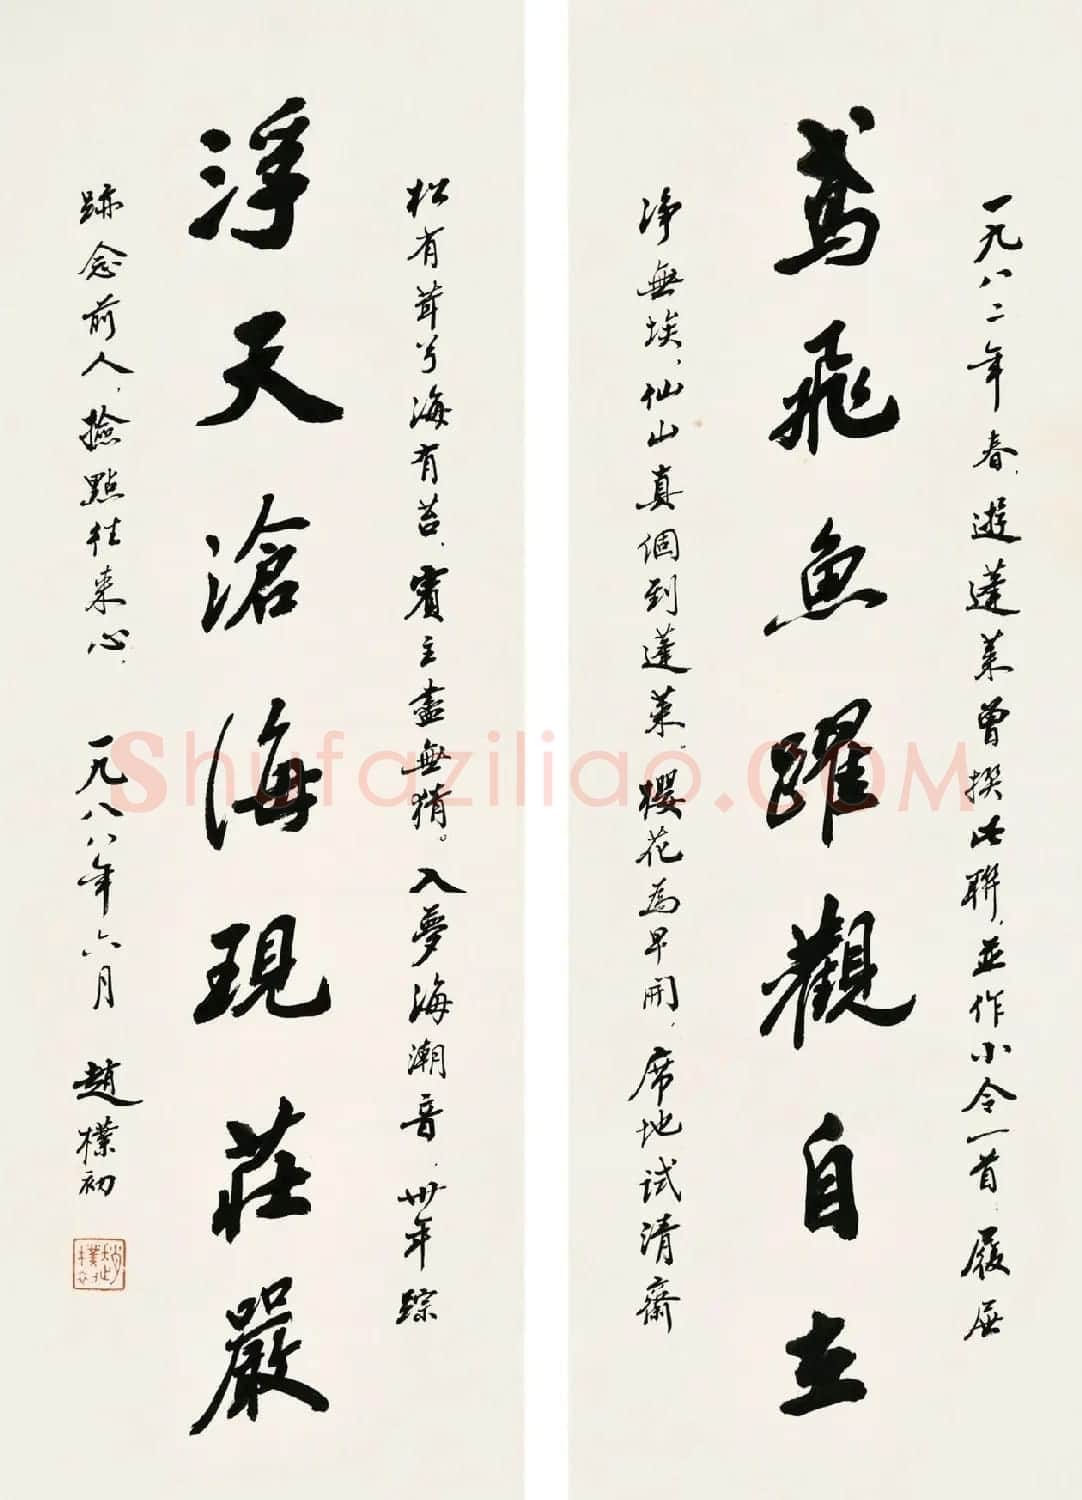 一九八二年春，遊蓬萊曾撰此聯，並作小令一首，履屐
鳶飛魚躍觀自在
淨無埃，仙山真個到蓬萊。櫻花為早開，席地試清齋
松有茸兮海有苔，賓主盡無猜。入夢海潮音，卅年踪
浮天滄海現莊嚴
跡念前人，撿點往來心。一九八八年六月 趙樸初
趙樸初
Shufaziliao.COM